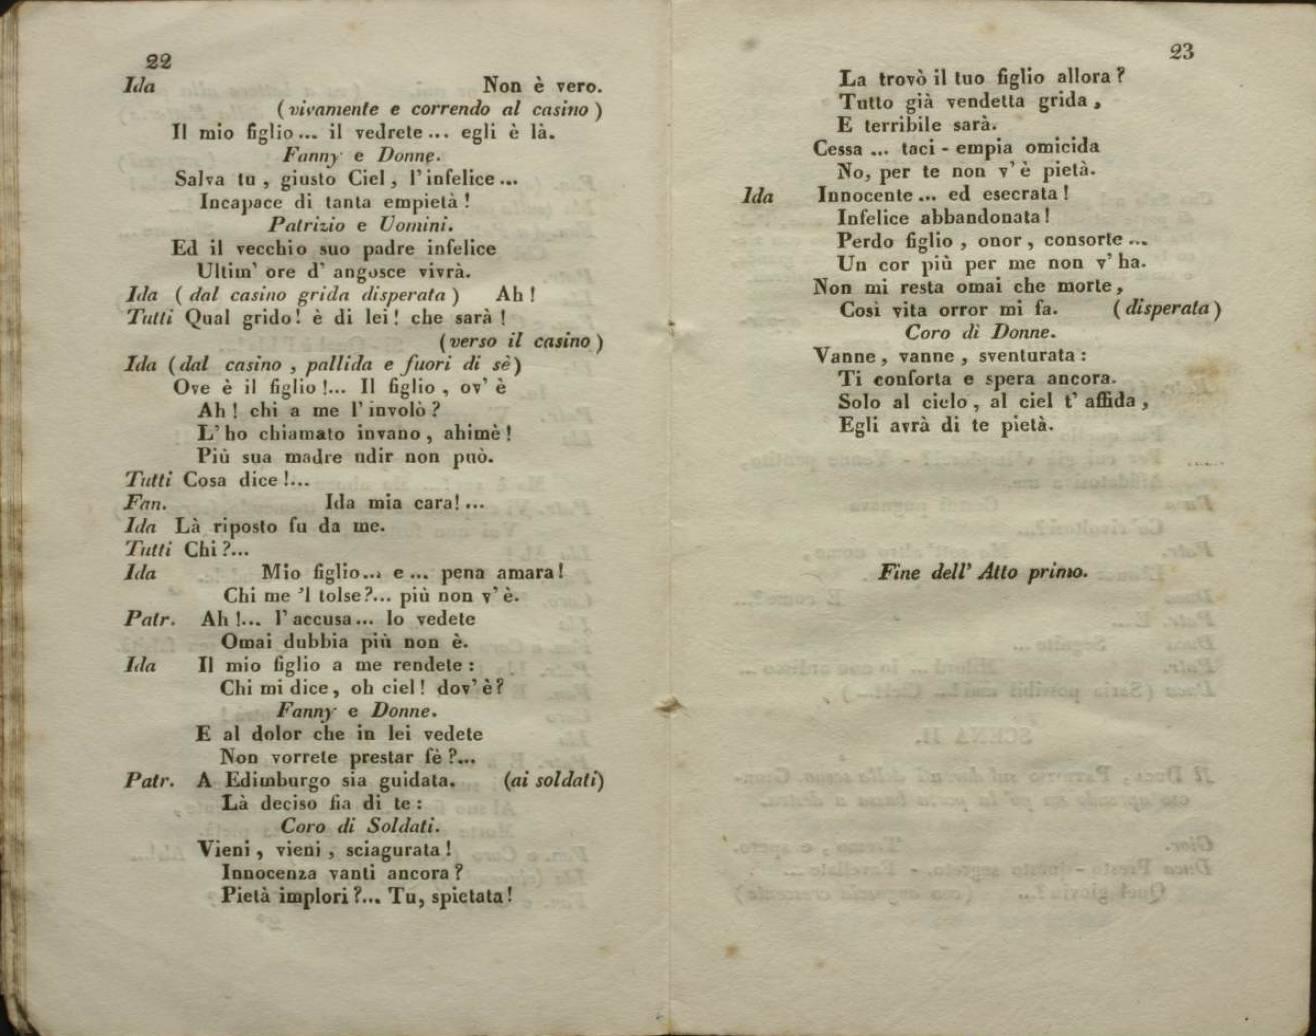 22
Ida Non è vero.
(vivamente e correndo al casino)
Il mio figlio... il vedrete... egli è là.
Fanny e Donne.
Salva tu, giusto Ciel, l'infelice...
Incapace di tanta empietà!
Patrizio e Uomini.
Ed il vecchio suo padre infelice
Ultim' ore d' angosce vivrà.
Ida (dal casino grida disperata) Ah!
Tutti Qual grido! è di lei! che sarà!
(verso il casino)
Ida (dal casino, pallida e fuori di sè)
Ove è il figlio!... Il figlio, ov' è
Ah! chi a me l'involò?
L'ho chiamato invano, ahimè!
Più sua madre udir non può.
Tutti Cosa dice!...
Fan. Ida mia cara!...
Ida Là riposto fu da me.
Tutti Chi?...
Ida Mio figlio... e... pena amara!
Chi me 'l tolse?... più non v'è.
Patr. Ah!... l'accusa... lo vedete
Omai dubbia più non è.
Ida Il mio figlio a me rendete:
Chi mi dice, oh ciel! dov'è?
Fanny e Donne.
E al dolor che in lei vedete
Non vorrete prestar fè?...
Patr. A Edimburgo sia guidata. (ai soldati)
Là deciso fia di te:
Coro di Soldati.
Vieni, vieni, sciagurata!
Innocenza vanti ancora?
Pietà implori?... Tu, spietata!
23
La trovò il tuo figlio allora?
Tutto già vendetta grida,
E terribile sarà.
Cessa... taci - empia omicida
No, per te non v'è pietà.
Ida Innocente... ed esecrata!
Infelice abbandonata!
Perdo figlio, onor, consorte...
Un cor più per me non v'ha.
Non mi resta omai che morte,
Così vita orror mi fa. (disperata)
Coro di Donne.
Vanne, vanne, sventurata:
Ti conforta e spera ancora.
Solo al cielo, al ciel t' affida,
Egli avrà di te pietà.
Fine dell' Atto primo.